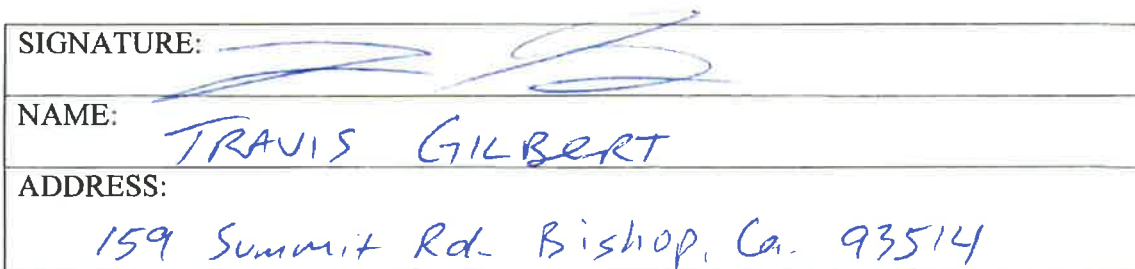 SIGNATURE:
NAME: TRAVIS GILBERT
ADDRESS:
159 Summit Rd. Bishop, Ca. 93514